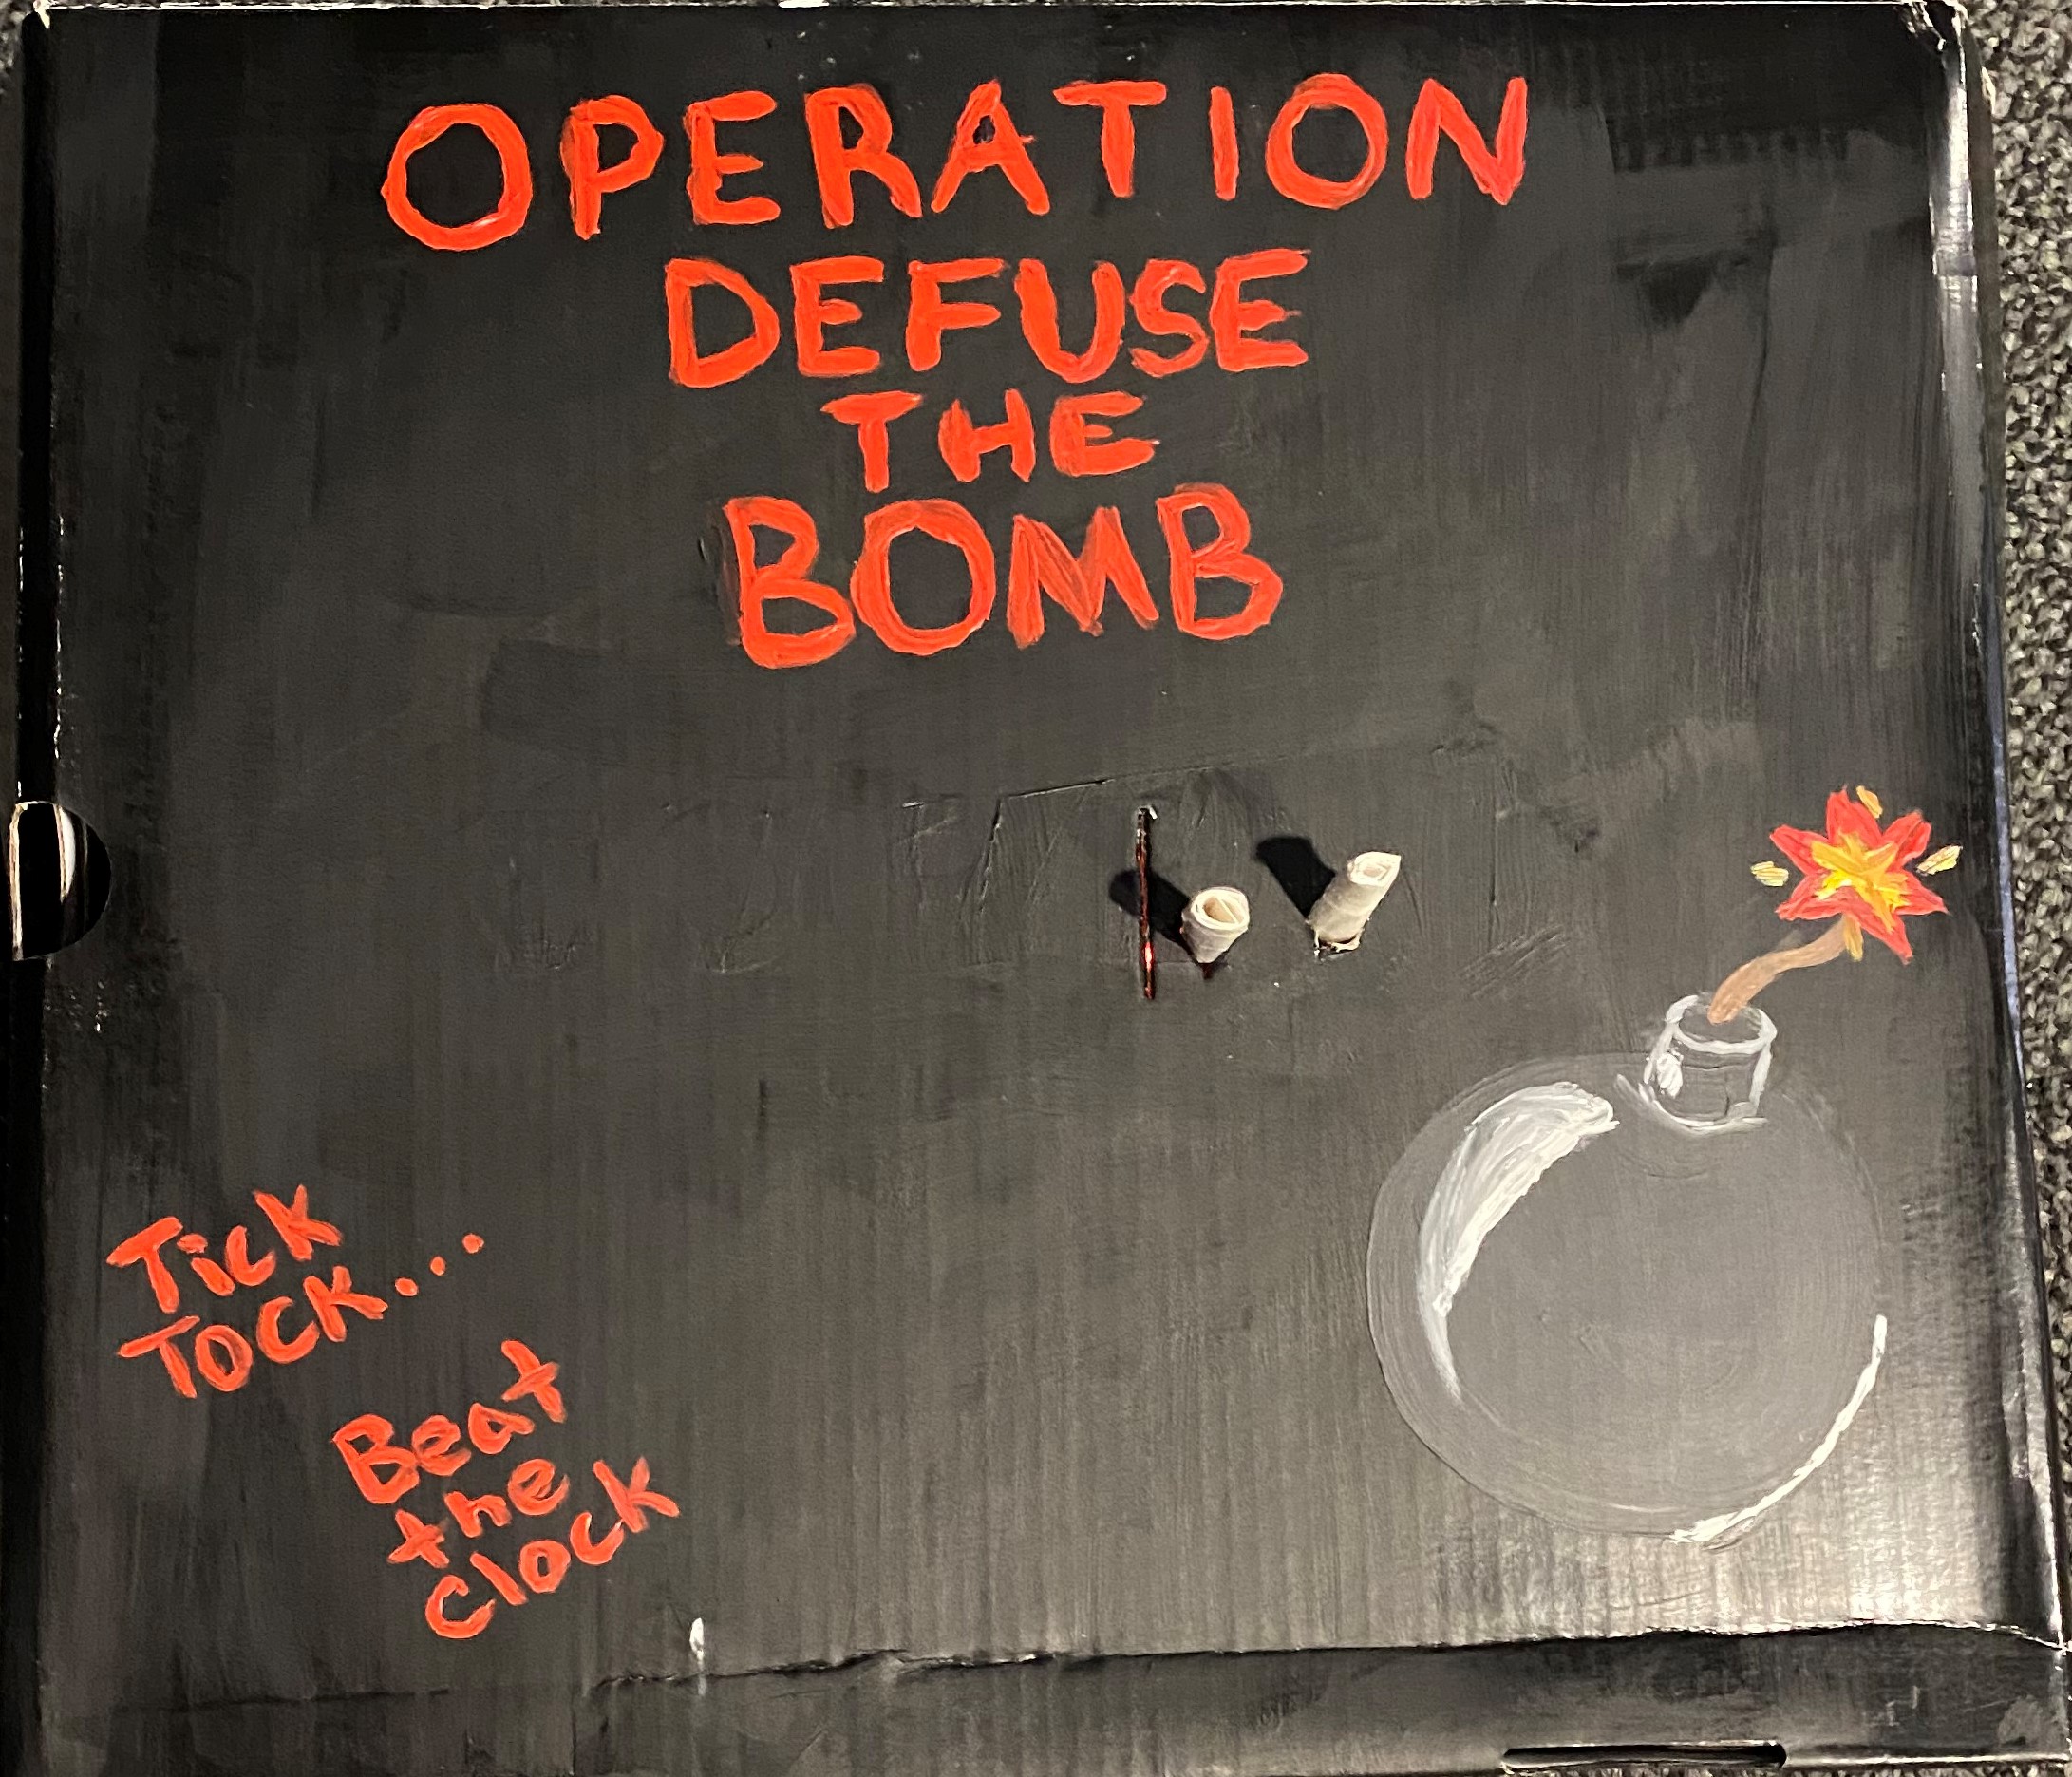 OPERATION
DEFUSE
THE
BOMB
Tick
TOCK...
Beat
the
Clock